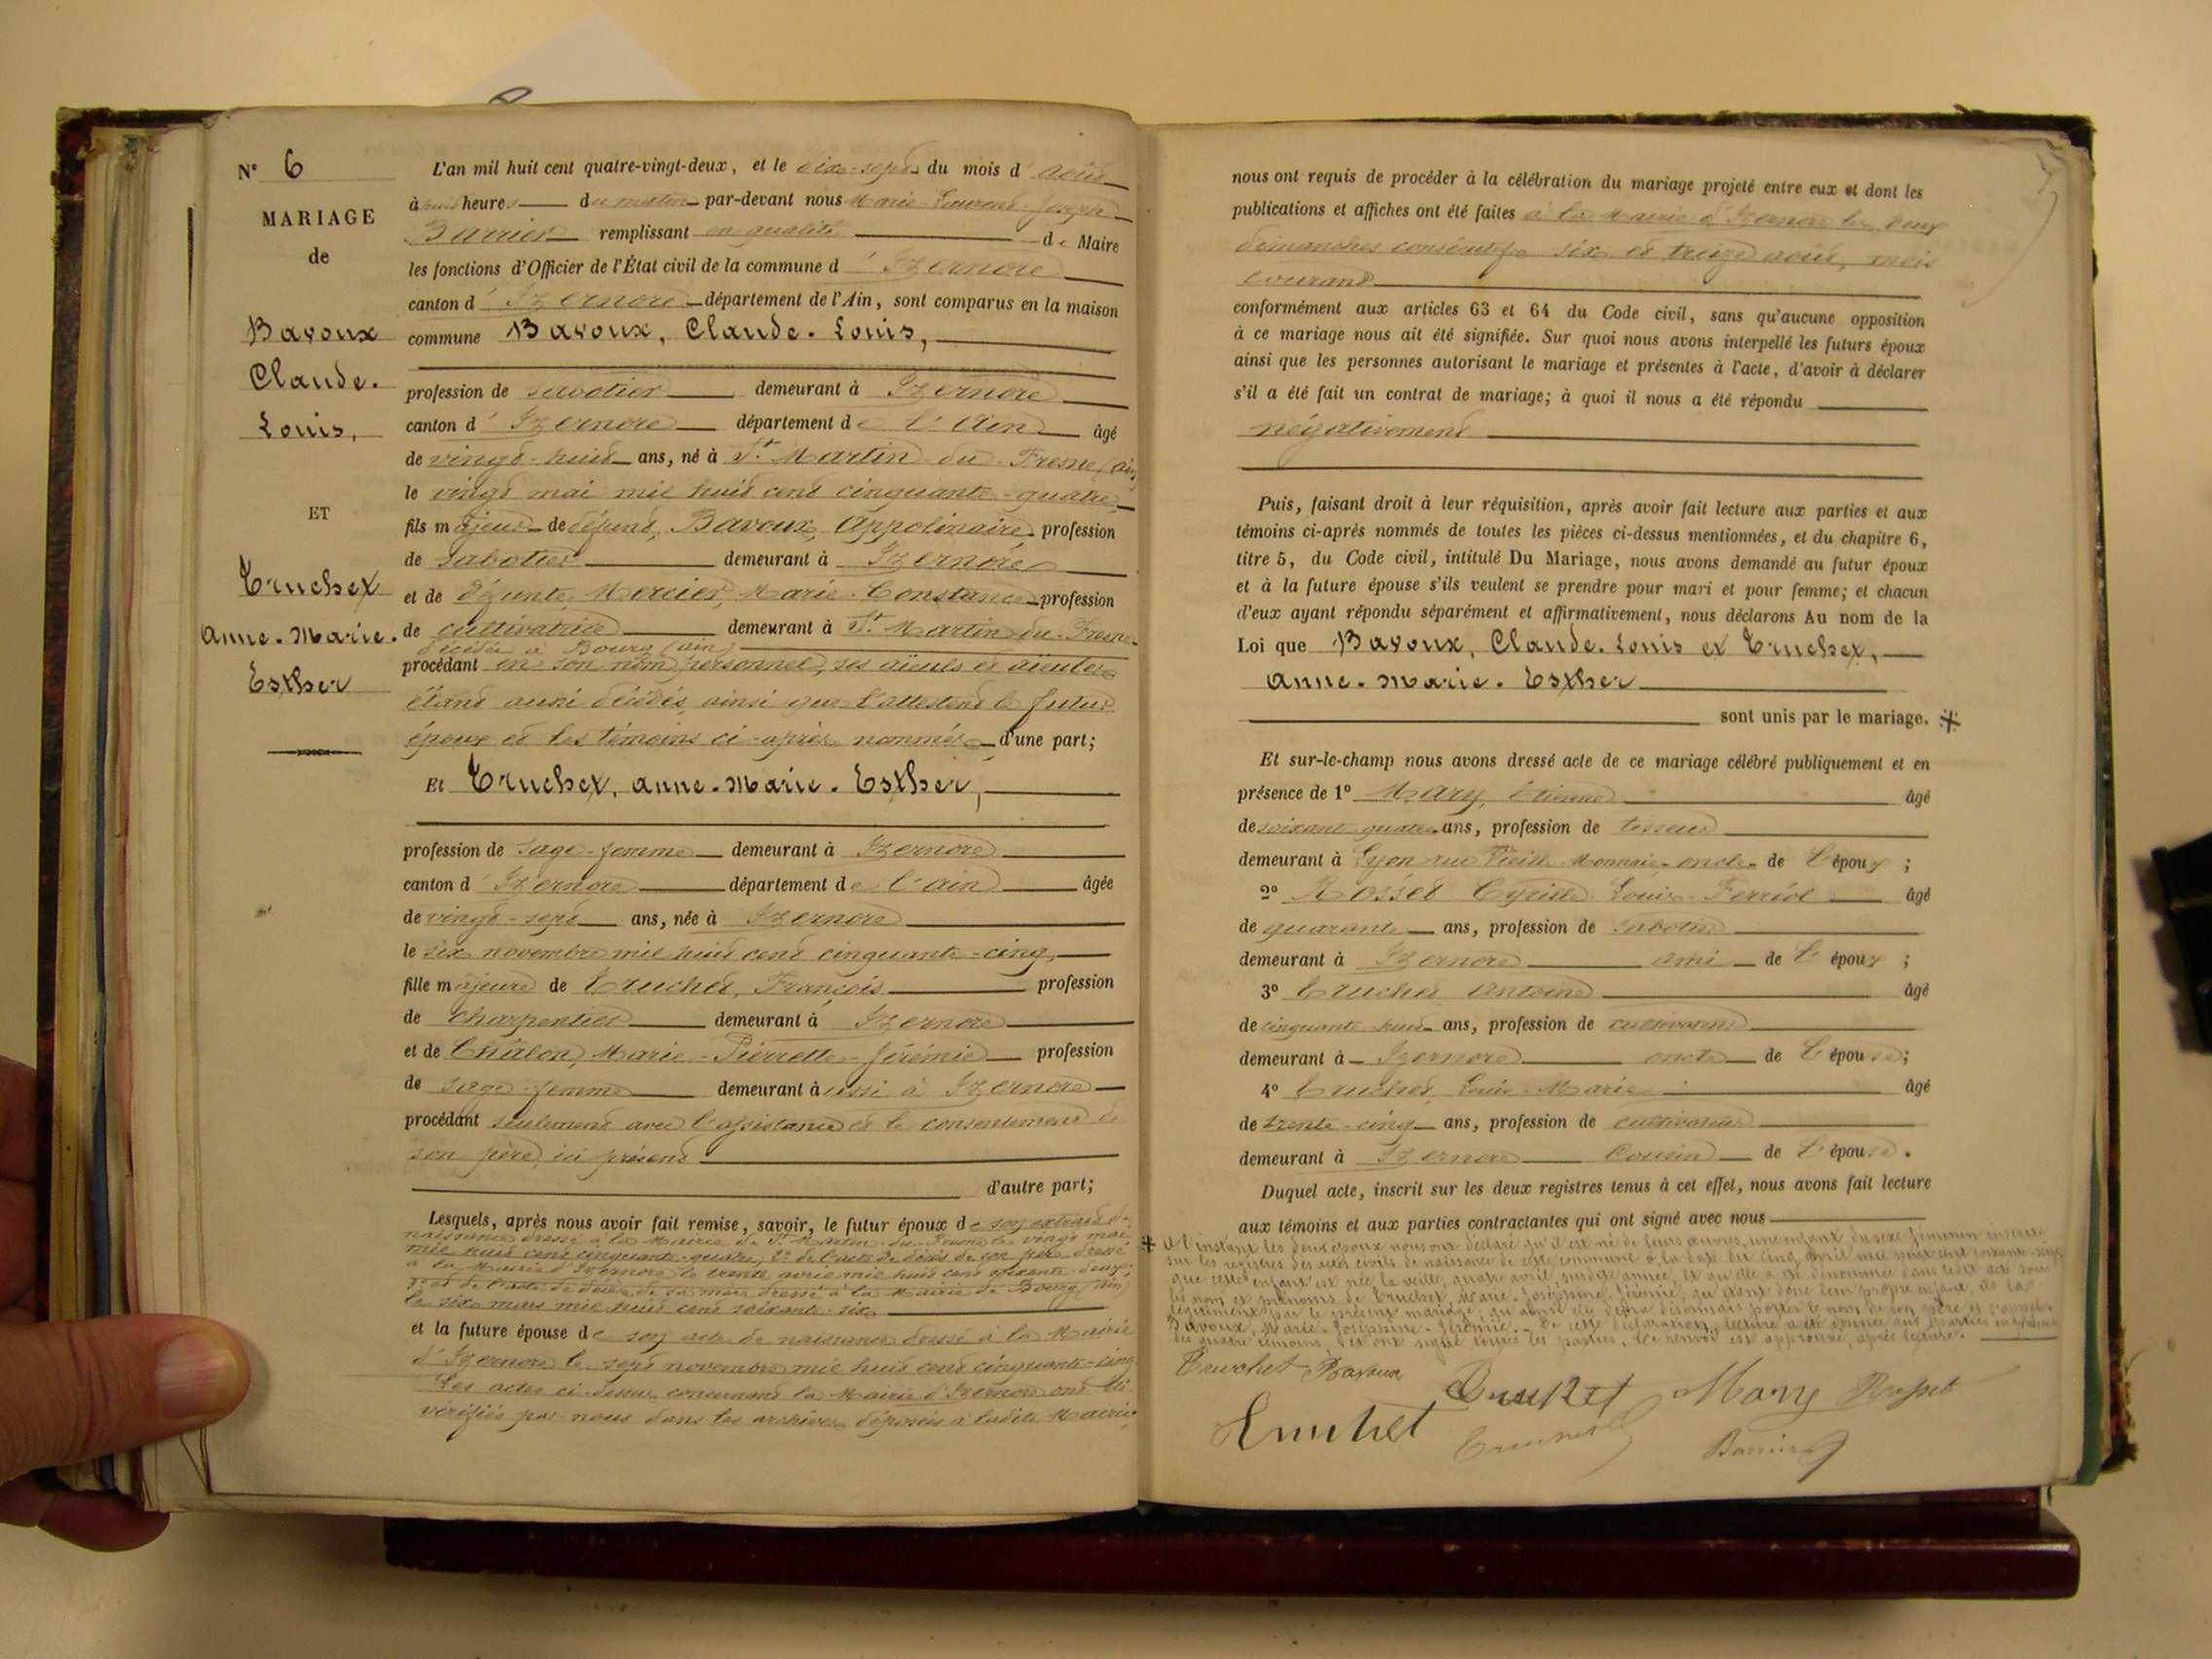 N° 6
MARIAGE
de
Bavoux
Claude.
Louis,
ET
Truchet
Anne-Marie.
Esther
L'an mil huit cent quatre-vingt-deux, et le dix-sept du mois d'août
à huit heures du matin par-devant nous Marie-Laurent-Joseph
Barrier remplissant en qualité de Maire
les fonctions d'Officier de l'État civil de la commune d'Izernore
canton d'Izernore département de l'Ain, sont comparus en la maison
commune Bavoux, Claude-Louis,
profession de sabotier demeurant à Izernore
canton d'Izernore département de l'Ain âgé
de vingt-huit ans, né à St. Martin-du-Fresne (Ain)
le vingt mai mil huit cent cinquante-quatre,
fils majeur de défunt, Bavoux, Appolinaire profession
de sabotier demeurant à Izernore
et de défunte, Mercier, Marie-Constance profession
de cultivatrice demeurant à St. Martin-du-Fresne
décédée à Bourg (Ain)
procédant en son nom personnel, ses aïeuls et aïeules
étant aussi décédés, ainsi que l'attestent le futur
époux et les témoins ci-après nommés d'une part;
Et Truchet, Anne-Marie-Esther,
profession de sage-femme demeurant à Izernore
canton d'Izernore département de l'Ain âgée
de vingt-sept ans, née à Izernore
le six novembre mil huit cent cinquante-cinq,
fille majeure de Truchet, François profession
de charpentier demeurant à Izernore
et de Châlon, Marie-Pierrette-Jérémie profession
de sage-femme demeurant aussi à Izernore
procédant seulement avec l'assistance et le consentement de
son père, ici présent
d'autre part;
Lesquels, après nous avoir fait remise, savoir, le futur époux de son extrait de
naissance dressé à la Mairie de St. Martin-du-Fresne le vingt mai
mil huit cent cinquante-quatre; 2° de l'acte de décès de son père dressé
à la Mairie d'Izernore le trente avril mil huit cent soixante-deux;
3° et de l'acte de décès de sa mère dressé à la Mairie de Bourg (Ain)
le six mars mil huit cent soixante-six
et la future épouse de son acte de naissance dressé à la Mairie
d'Izernore le sept novembre mil huit cent cinquante-cinq
Les actes ci-dessus concernant la Mairie d'Izernore ont été
vérifiés par nous dans les archives déposées à ladite Mairie
nous ont requis de procéder à la célébration du mariage projeté entre eux et dont les
publications et affiches ont été faites à la Mairie d'Izernore les deux
dimanches consécutifs six et treize août, mois
courant
conformément aux articles 63 et 64 du Code civil, sans qu'aucune opposition
à ce mariage nous ait été signifiée. Sur quoi nous avons interpellé les futurs époux
ainsi que les personnes autorisant le mariage et présentes à l'acte, d'avoir à déclarer
s'il a été fait un contrat de mariage; à quoi il nous a été répondu
négativement
Puis, faisant droit à leur réquisition, après avoir fait lecture aux parties et aux
témoins ci-après nommés de toutes les pièces ci-dessus mentionnées, et du chapitre 6,
titre 5, du Code civil, intitulé Du Mariage, nous avons demandé au futur époux
et à la future épouse s'ils veulent se prendre pour mari et pour femme; et chacun
d'eux ayant répondu séparément et affirmativement, nous déclarons Au nom de la
Loi que Bavoux, Claude-Louis et Truchet,
Anne-Marie-Esther
sont unis par le mariage.
Et sur-le-champ nous avons dressé acte de ce mariage célébré publiquement et en
présence de 1° Mary, Étienne âgé
de soixante-quatre ans, profession de tisseur
demeurant à Lyon rue Vieille Monnaie, oncle de l'époux;
2° Rosset Cyrille-Louis-Ferréol âgé
de quarante ans, profession de sabotier
demeurant à Izernore ami de l'époux;
3° Truchet Antoine âgé
de cinquante-huit ans, profession de cultivateur
demeurant à Izernore oncle de l'épouse;
4° Truchet, Louis-Marie âgé
de trente-cinq ans, profession de cultivateur
demeurant à Izernore cousin de l'épouse.
Duquel acte, inscrit sur les deux registres tenus à cet effet, nous avons fait lecture
aux témoins et aux parties contractantes qui ont signé avec nous
A l'instant les deux époux nous ont déclaré qu'il est né de leurs œuvres, une enfant du sexe féminin inscrite
sur les registres des actes civils de naissance de cette commune à la date du cinq avril mil huit cent soixante-
que cette enfant est née la veille, quatre avril, susdite année, et qu'elle a été dénommée dans ledit acte sous
les nom et prénoms de Truchet, Marie-Joséphine-Jérémie; 
légitiment par le présent mariage; qu'ainsi elle devra désormais porter le nom de son père et s'appeler
Bavoux, Marie-Joséphine-Jérémie. De cette déclaration, lecture a été donnée aux parties en présence
des quatre témoins, et ont signé toutes les parties. Ce renvoi est approuvé, après lecture.
Truchet Bavoux
Truchet Mary Rosset
Truchet
Barrier